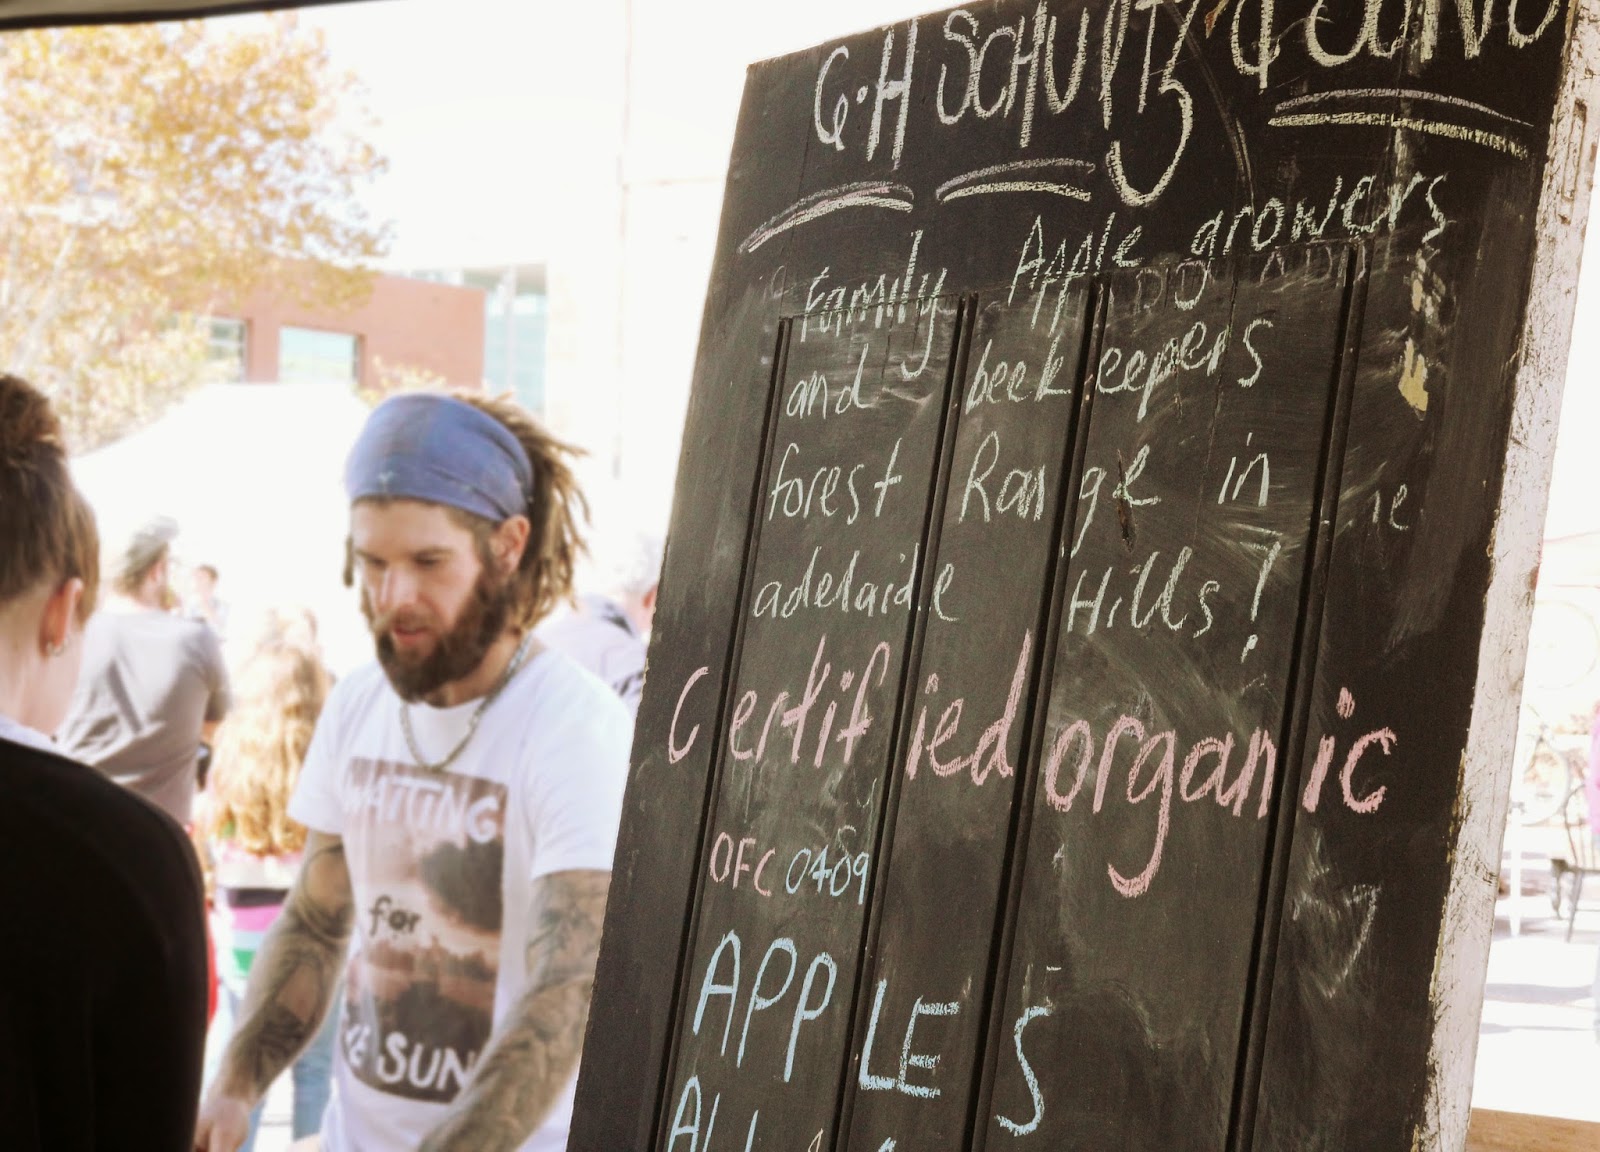 G.H SCHULTZ & CO
Family Apple growers
and beekeepers
forest Range in
adelaide Hills!
Certified organic
OFC 0409
APPLES
ALL
WAITING
for
THE SUN